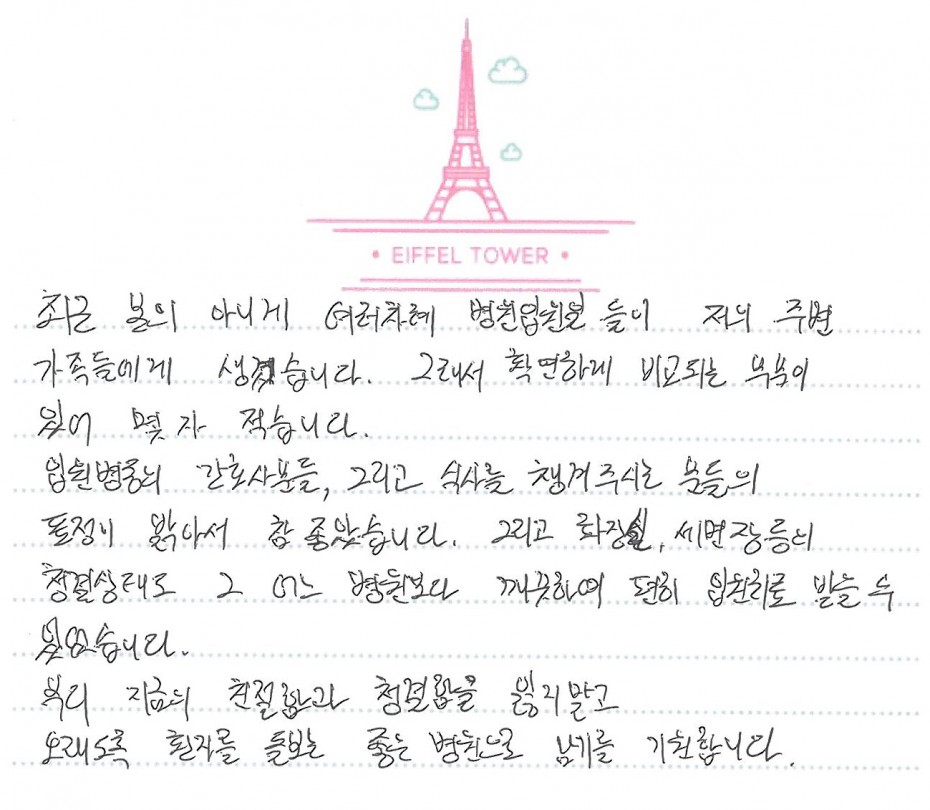 • EIFFEL TOWER •
최근 본의 아니게 여러차례 병원입원일들이 저의 주변
가족들에게 생겼습니다. 그래서 확연하게 비교되는 부분이
있어 몇 자 적습니다.
입원병동의 간호사분들, 그리고 식사를 챙겨주시는 분들의
표정이 밝아서 참 좋았습니다. 그리고 화장실, 세면장등의
청결상태도 그 어느 병원보다 깨끗하여 편히 입원치료 받을 수
있었습니다.
부디 지금의 친절함과 청결함을 잃지말고
오래도록 환자를 돌보는 좋은 병원으로 남기를 기원합니다.